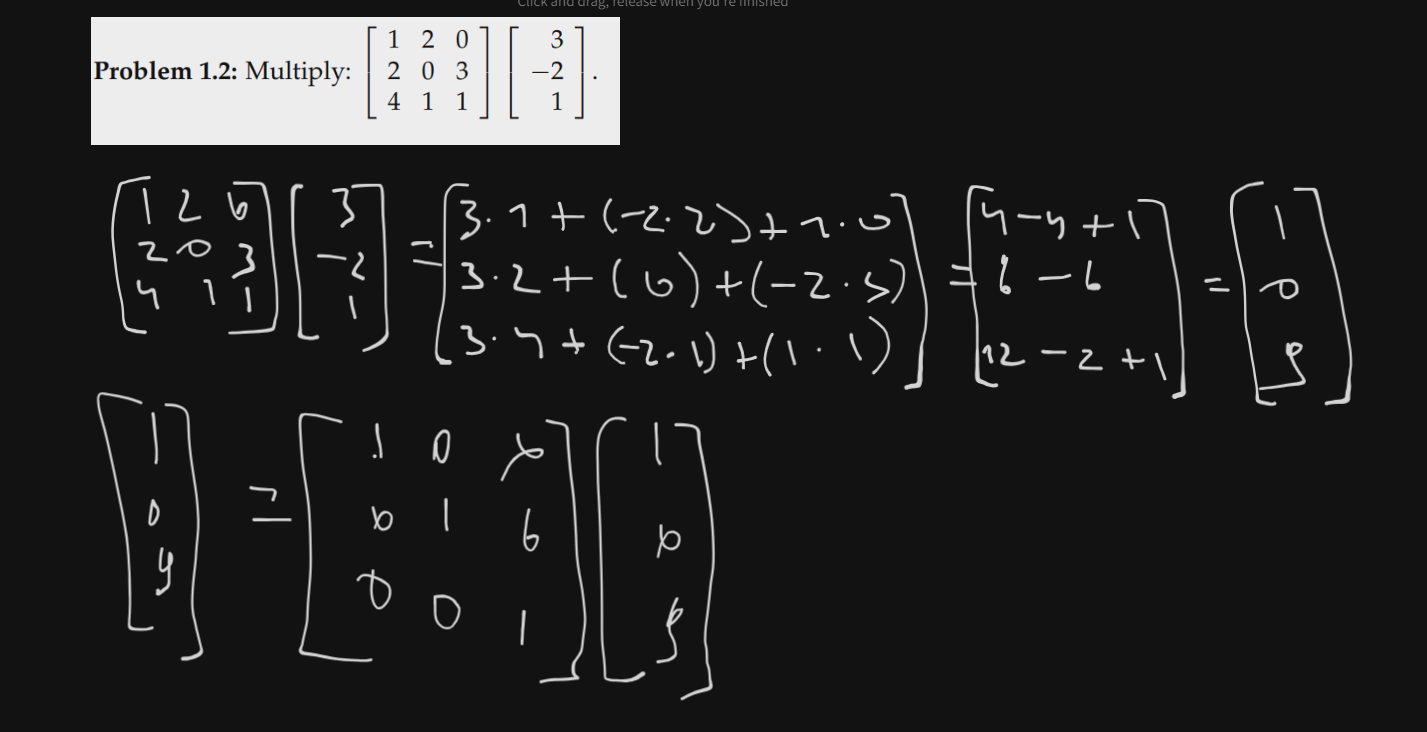 Click and drag, release when you're finished
Problem 1.2: Multiply: [ 1 2 0 ; 2 0 3 ; 4 1 1 ] [ 3 ; −2 ; 1 ] .
[ 1 2 0 ; 2 0 3 ; 4 1 1 ] [ 3 ; -2 ; 1 ] = [ 3·1 + (-2·2) + 1·0 ; 3·2 + (0) + (-2·3) ; 3·4 + (-2·1) + (1·1) ] = [ 4-4+1 ; 6-6 ; 12-2+1 ] = [ 1 ; 0 ; 9 ]
[ 1 ; 0 ; 9 ] = [ 1 0 0 ; 0 1 0 ; 0 0 1 ] [ 1 ; 0 ; 9 ]